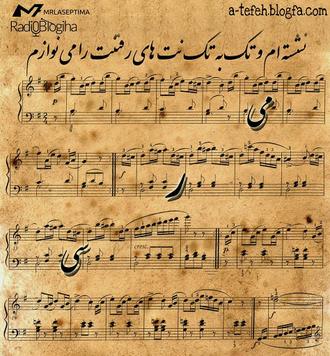 MRLASEPTIMA
RadioBlogiha
a-tefeh.blogfa.com
نشسته ام و تک به تک نت های رفتنت را می نوازم
می
ر
سی